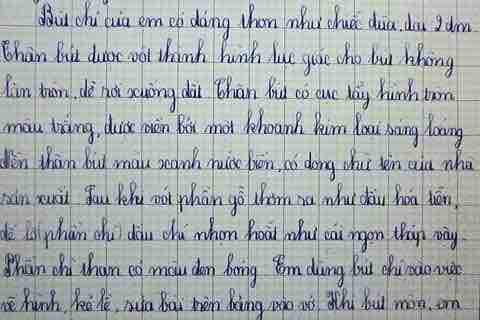 Bút chì của em có dáng thon như chiếc đũa, dài 2 dm.
Thân bút được vót thành hình lục giác cho bút không
lăn tròn, dễ rơi xuống đất. Thân bút có cục tẩy hình tròn
màu trắng, được viền bởi một khoanh kim loại sáng loáng
thân bút màu xanh nước biển, có dòng chữ tên của nhà
sản xuất. Sau khi vót phần gỗ thòm ra như đầu hoả tiễn,
để lộ (phần chì) đầu chì nhọn hoắt như cái ngọn tháp vậy.
Phần chì than có màu đen bóng. Em dùng bút chì vào việc
vẽ hình, kẻ lề, sửa bài trên bảng vào vở. Khi bút mòn, em